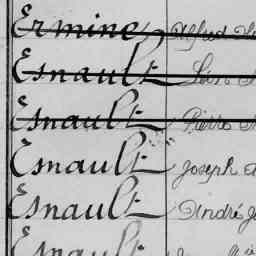 Ermine Alfred
Esnault Léon
Esnault Pierre
Esnault Joseph
Esnault André
Esnault